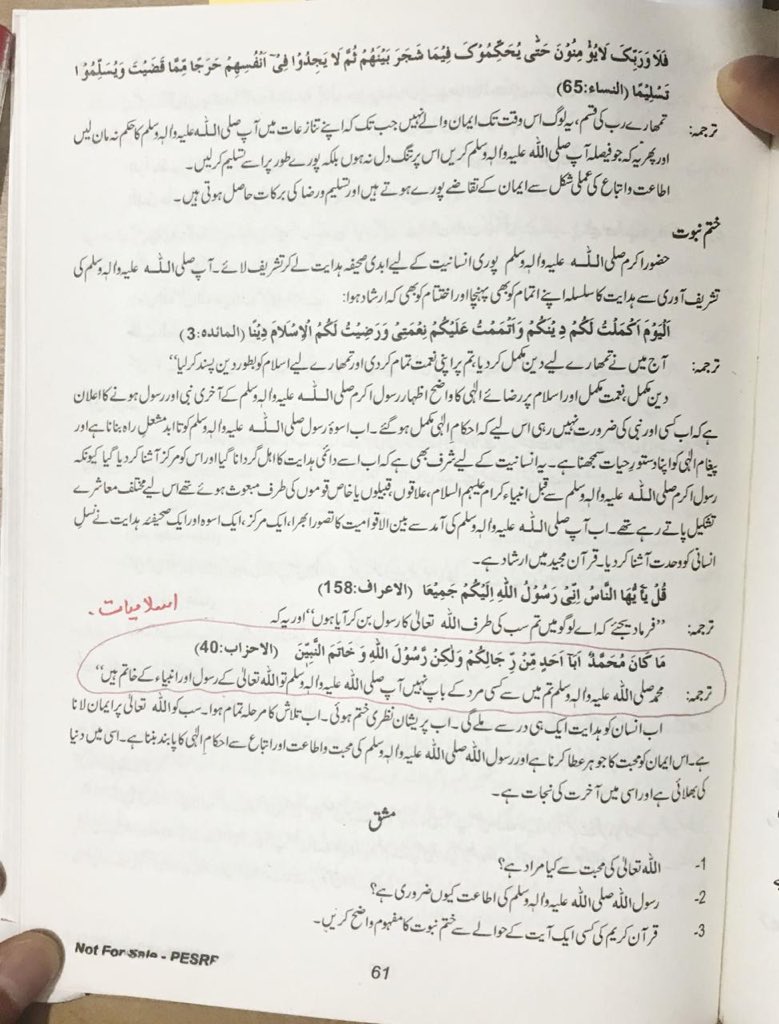 فَلَا وَرَبِّکَ لَایُؤْ مِنُوْنَ حَتّٰی یُحَکِّمُوْکَ فِیْمَا شَجَرَ بَیْنَهُمْ ثُمَّ لَا یَجِدُوْا فِیْٓ اَنْفُسِهِمْ حَرَجًا مِّمَّا قَضَیْتَ وَیُسَلِّمُوْا
تَسْلِیْمًا (النساء:65)
ترجمہ: تمہارے رب کی قسم، یہ لوگ اس وقت تک ایمان والے نہیں جب تک کہ اپنے تنازعات میں آپ صلی اللہ علیہ والہ وسلم کا حکم نہ مان لیں
اور پھر یہ کہ جو فیصلہ آپ صلی اللہ علیہ والہ وسلم کریں اس پر تنگ دل نہ ہوں بلکہ پورے طور پر اسے تسلیم کرلیں۔
اطاعت و اتباع کی عملی شکل سے ایمان کے تقاضے پورے ہوتے ہیں اور تسلیم و رضا کی برکات حاصل ہوتی ہیں۔
ختم نبوت
حضور اکرم صلی اللہ علیہ والہ وسلم پوری انسانیت کے لیے ابدی صحیفہ ہدایت لے کر تشریف لائے۔ آپ صلی اللہ علیہ والہ وسلم کی
تشریف آوری سے ہدایت کا سلسلہ اپنے اتمام کو بھی پہنچا اور اختتام کو بھی کہ ارشاد ہوا:
اَلْیَوْمَ اَکْمَلْتُ لَکُمْ دِیْنَکُمْ وَاَتْمَمْتُ عَلَیْکُمْ نِعْمَتِیْ وَرَضِیْتُ لَکُمُ الْاِسْلَامَ دِیْنًا (المائدہ:3)
ترجمہ: آج میں نے تمہارے لیے دین مکمل کر دیا، تم پر اپنی نعمت تمام کر دی اور تمہارے لیے اسلام کو بطور دین پسند کرلیا‘‘
دین مکمل، نعمت مکمل اور اسلام پر رضائے الٰہی کا واضح اظہار رسول اکرم صلی اللہ علیہ والہ وسلم کے آخری نبی اور رسول ہونے کا اعلان
ہے کہ اب کسی اور نبی کی ضرورت نہیں رہی اس لیے کہ احکام الٰہی مکمل ہو گئے۔ اب اسوۂ رسول صلی اللہ علیہ والہ وسلم کو تا ابد مشعل راہ بنانا ہے اور
پیغام الٰہی کو اپنا دستور حیات سمجھنا ہے۔ یہ انسانیت کے لیے شرف بھی ہے کہ اب اسے دائمی ہدایت کا اہل گردانا گیا اور اس کو مرکز آشنا کر دیا گیا کیونکہ
رسول اکرم صلی اللہ علیہ والہ وسلم سے قبل انبیاء کرام علیہم السلام، علاقوں، قبیلوں یا خاص قوموں کی طرف مبعوث ہوئے تھے اس لیے مختلف معاشرے
تشکیل پاتے رہے تھے۔ اب آپ صلی اللہ علیہ والہ وسلم کی آمد سے بین الاقوامیت کا تصور ابھرا، ایک مرکز، ایک اسوہ اور ایک صحیفۂ ہدایت نے نسلِ
انسانی کو وحدت آشنا کر دیا۔ قرآن مجید میں ارشاد ہے۔
قُلْ یٰٓاَیُّهَا النَّاسُ اِنِّیْ رَسُوْلُ اللّٰهِ اِلَیْکُمْ جَمِیْعَا (الاعراف:158)
اسلامیات۔
ترجمہ: ’’فرما دیجئے کہ اے لوگو میں تم سب کی طرف اللہ تعالٰی کا رسول بن کر آیا ہوں‘‘ اور یہ کہ
مَا کَانَ مُحَمَّدٌ اَبَآ اَحَدٍ مِّنْ رِّجَالِکُمْ وَلٰکِنْ رَّسُوْلَ اللّٰهِ وَ خَاتَمَ النَّبِیّٖنَ (الاحزاب:40)
ترجمہ: محمد صلی اللہ علیہ والہ وسلم تم میں سے کسی مرد کے باپ نہیں آپ صلی اللہ علیہ والہ وسلم تو اللہ تعالٰی کے رسول اور انبیاء کے خاتم ہیں‘‘
اب انسان کو ہدایت ایک ہی در سے ملے گی۔ اب پریشان نظری ختم ہوئی۔ اب تلاش کا مرحلہ تمام ہوا۔ سب کو اللہ تعالٰی پر ایمان لانا
ہے۔ اس ایمان کو محبت کا جوہر عطا کرنا ہے اور رسول اللہ صلی اللہ علیہ والہ وسلم کی محبت و اطاعت اور اتباع سے احکام الٰہی کا پابند بننا ہے۔ اسی میں دنیا
کی بھلائی ہے اور اسی میں آخرت کی نجات ہے۔
مشق
1- اللہ تعالٰی کی محبت سے کیا مراد ہے؟
2- رسول اللہ صلی اللہ علیہ والہ وسلم کی اطاعت کیوں ضروری ہے؟
3- قرآن کریم کی کسی ایک آیت کے حوالے سے ختم نبوت کا مفہوم واضح کریں۔
Not For Sale - PESRP
61